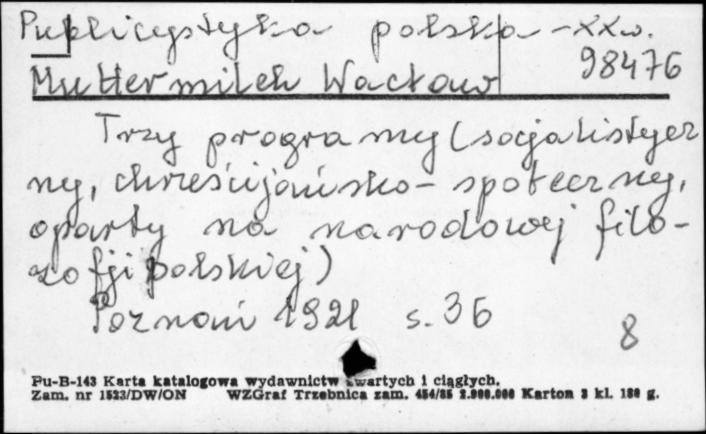 Publicystyka polska - XX w.
98476
Muttermilch Wacław
Trzy programy (socjalistycz
ny, chrześcijańsko - społeczny,
oparty na narodowej filo-
zofji polskiej)
Poznań 1921 s. 36
8
Pu-B-143 Karta katalogowa wydawnictw zwartych i ciągłych.
Zam. nr 1523/DW/ON WZGraf Trzebnica zam. 454/85 2.000.000 Karton 3 kl. 180 g.